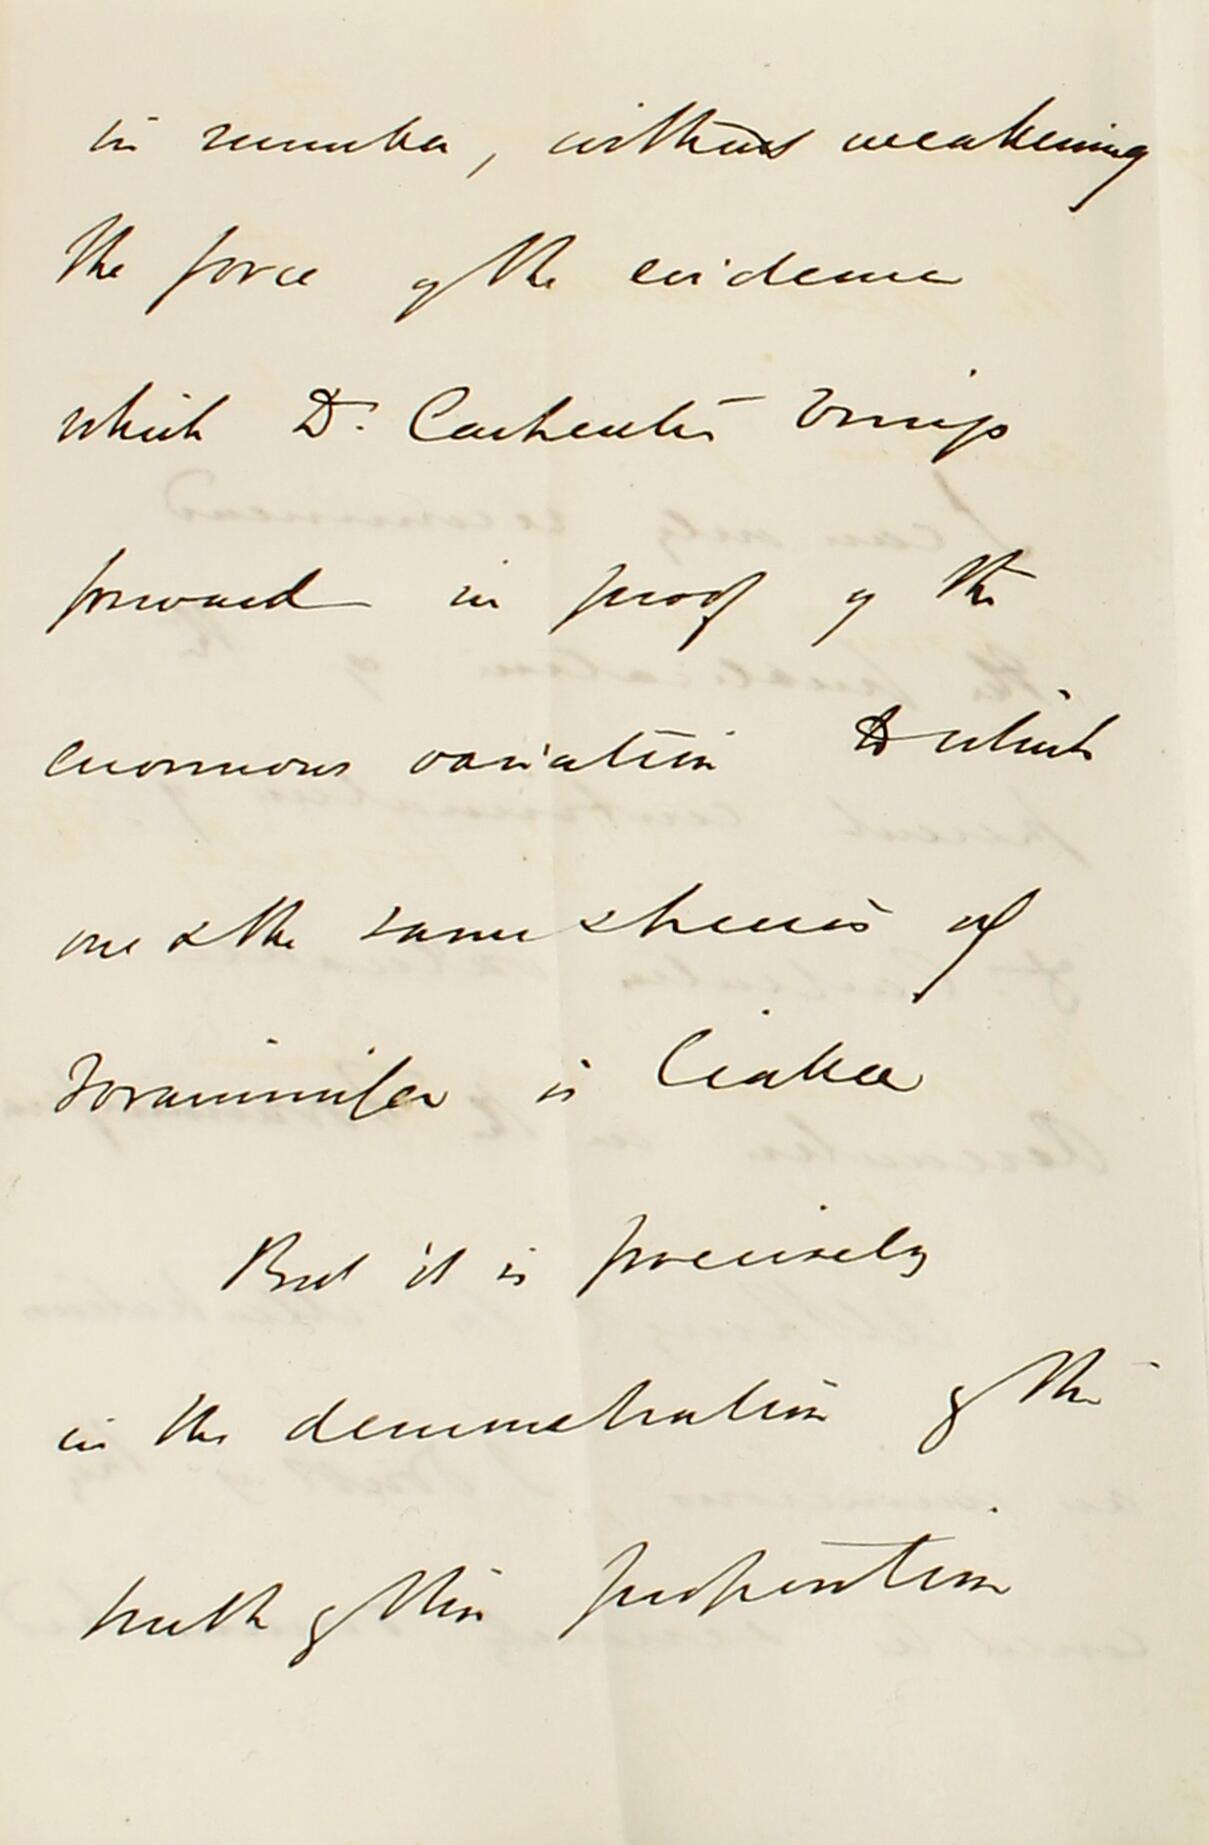 in number, without weakening
the force of the evidence
which Dr. Carpenter brings
forward in proof of the
enormous variation to which
one & the same species of
Foraminifer is liable
But it is precisely
in the demonstration of the
truth of this proposition